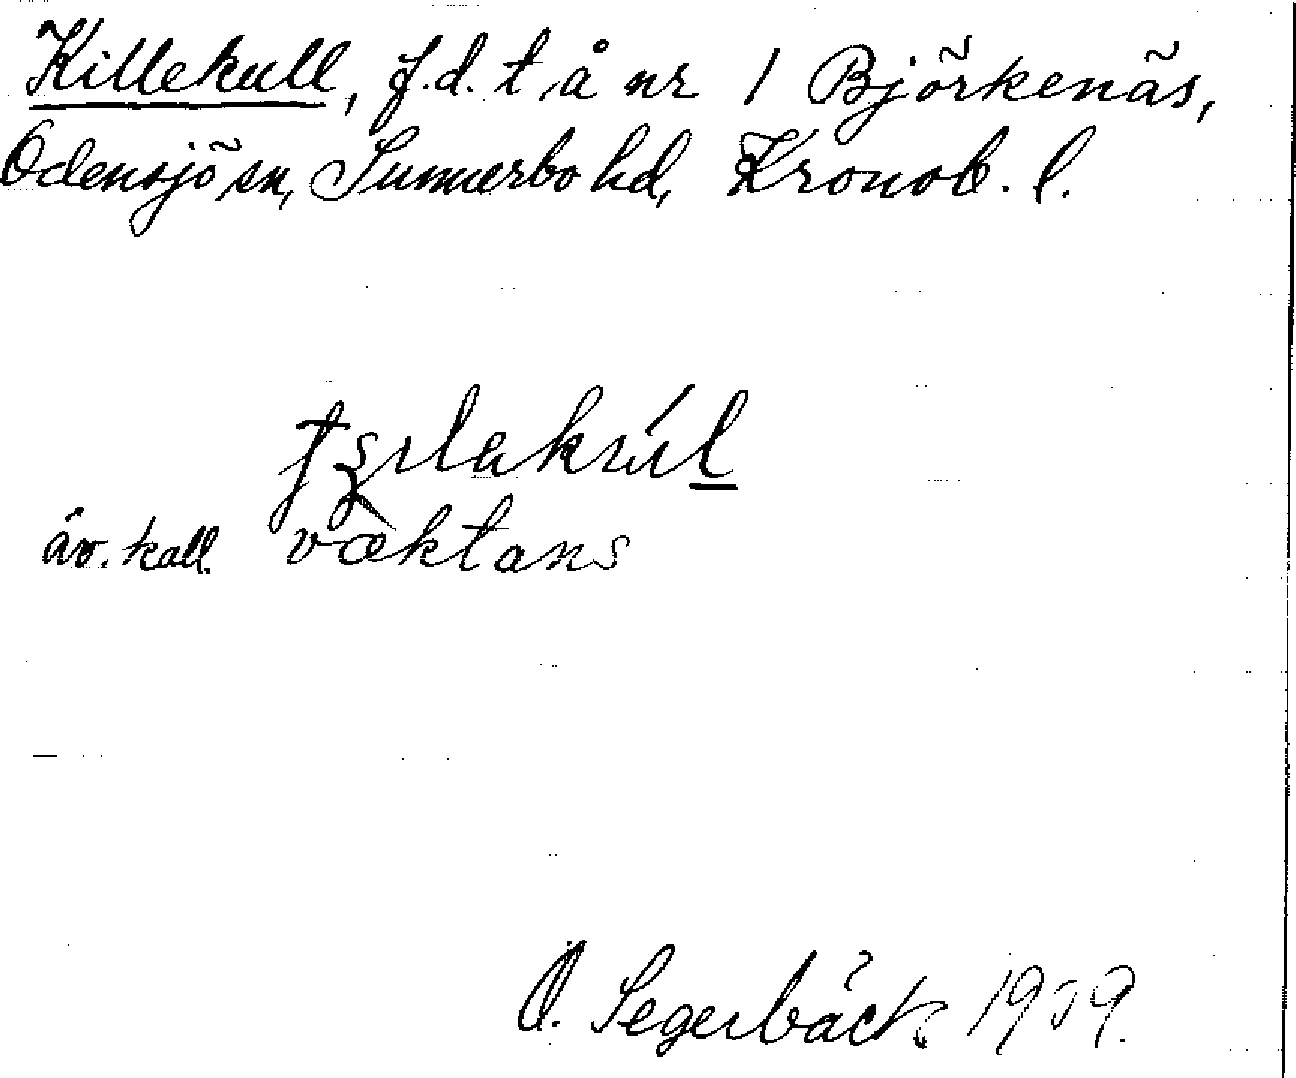 Killekull, f.d. t å nr 1 Björkenäs,
Odensjö sn, Sunnerbo hd, Kronob. l.
äv. kall. væktans
O. Segerbäck 1939.